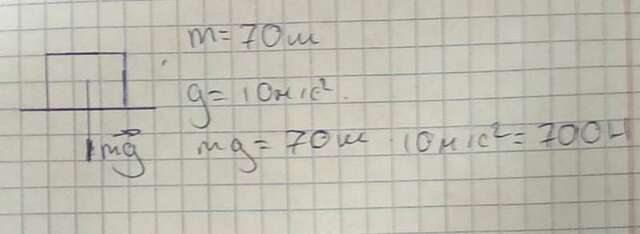 m = 70 кг
g = 10 м/с².
mg mg = 70 кг · 10 м/с² = 700 Н